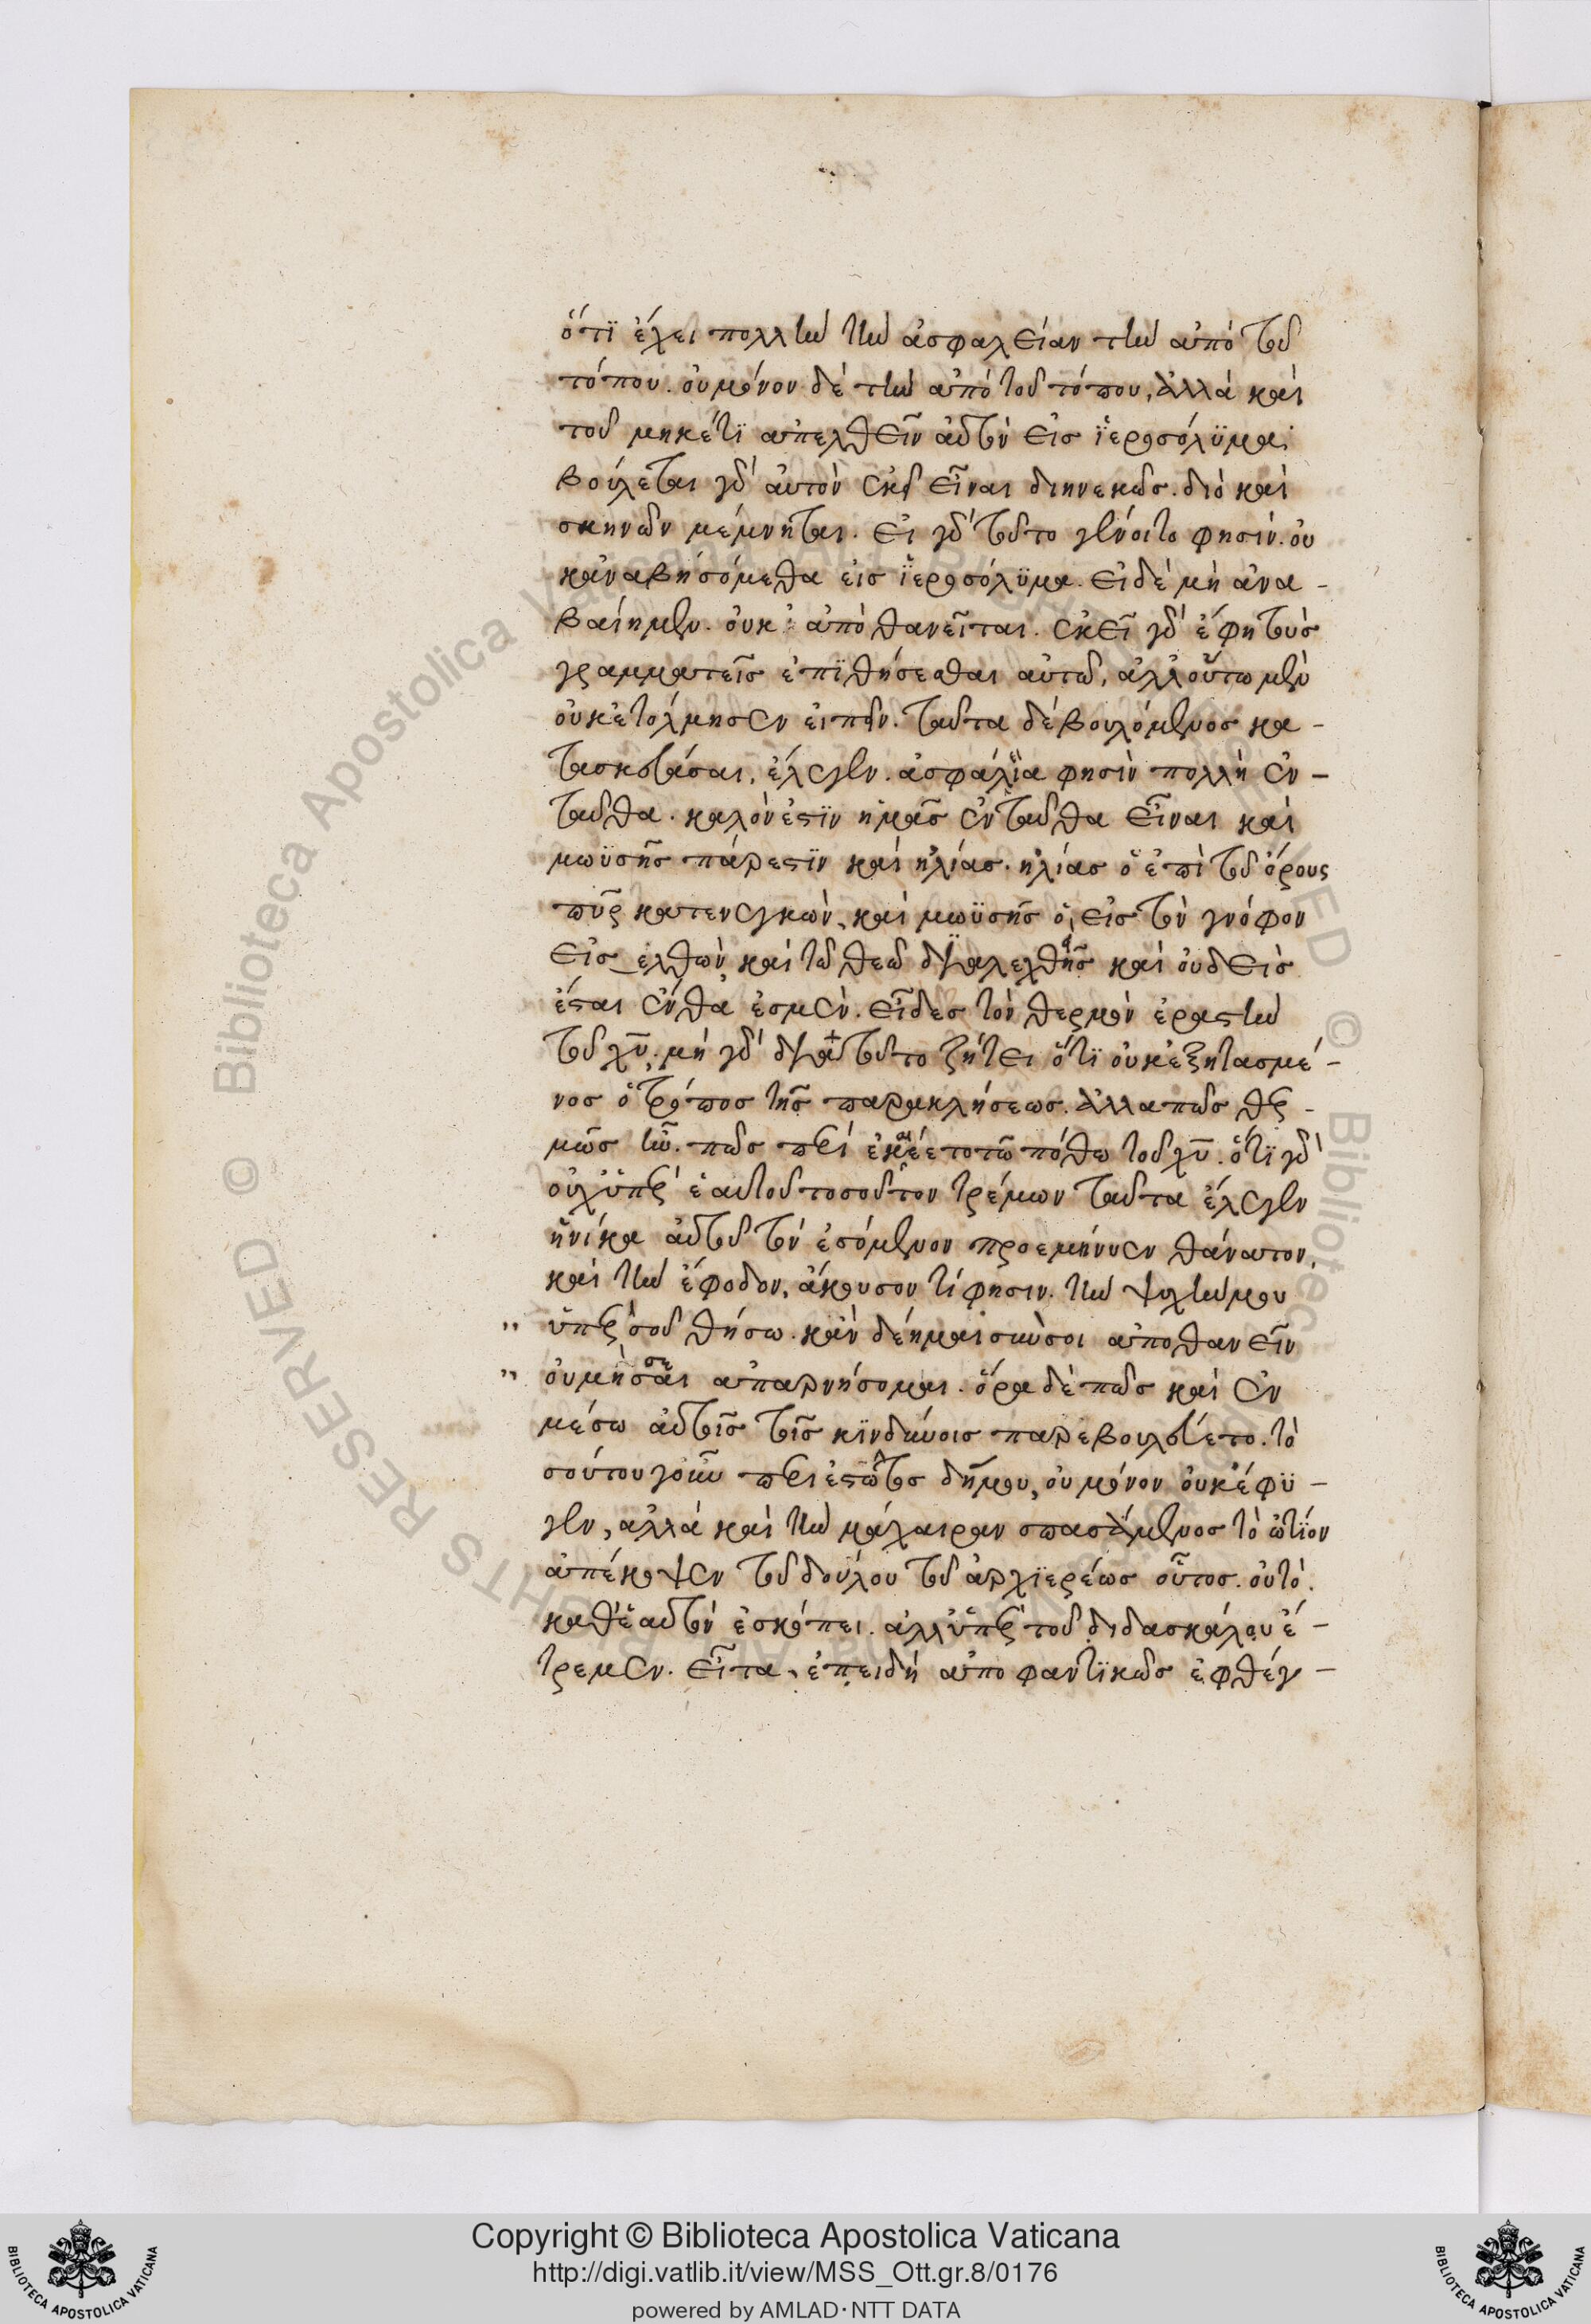 ὅτϊ ἔχει πολλὴν τὴν ἀσφαλείαν τὴν ἀπὸ τοῦ
τόπου. οὐ μόνον δὲ τὴν ἀπὸ τοῦ τόπου, ἀλλὰ καὶ
τοῦ μηκέτϊ ἀπελθεῖν αὐτὸν εἰς ϊεροσόλϋμα.
βούλεται γὰρ αὐτὸν ἐκεῖ εἶναι διηνεκῶς. διὸ καὶ
σκηνῶν μέμνηται. εἰ γὰρ τοῦτο γένοιτο φησίν. οὐ
κἀναβησόμεθα εἰς ϊεροσόλϋμα. εἰ δὲ μὴ ἀνα-
βαίημεν. οὐκ ἀποθανεῖται. ἐκεῖ γὰρ ἔφη τοὺς
γραμματεῖς ἐπϊθήσεσθαι αὐτῶ, ἀλλ' οὕτω μὲν
οὐκ ἐτόλμησεν εἰπεῖν. ταῦτα δὲ βουλόμενος κα-
τασκευάσαι, ἔλεγεν. ἀσφάλεια φησὶν πολλὴ ἐν-
ταῦθα. καλόν ἐστϊν ἡμᾶς ἐνταῦθα εἶναι καὶ
μωϋσῆς πάρεστϊν καὶ ἠλίας. ἠλίας ὁ ἐπὶ τοῦ ὄρους
πῦρ κατενεγκών, καὶ μωϋσῆς ὁ εἰς τὸν γνόφον
εἰσελθών, καὶ τῶ θεῶ διαλεχθεῖς καὶ οὐδεὶς
ἔσται ἔνθα ἐσμέν. εἶδες τὸν θερμὸν ἐραστὴν
τοῦ χῦ. μὴ γὰρ δὴ τοῦτο ζήτει ὅτϊ οὐκ ἐξητασμέ-
νος ὁ τρόπος τῆς παρακλήσεως. ἀλλὰ πῶς θερ-
μῶς ἦν. πῶς περιεκαίετο τῶ πόθω τοῦ χῦ. ὅτϊ γὰρ
οὐχ ὑπὲρ ἑαυτοῦ τοσοῦτον τρέμων ταῦτα ἔλεγεν
ἡνίκα αὐτοῦ τὸν ἐσόμενον προεμήνυεν θάνατον,
καὶ τὴν ἔφοδον, ἄκουσον τί φησιν. τὴν ψυχήν μου
" ὑπὲρ σοῦ θήσω. κἂν δέη με σὺν σοι ἀποθανεῖν
" οὐ μή σε ἀπαρνήσομαι. ὅρα δὲ πῶς καὶ ἐν
μέσω αὐτοῖς τοῖς κϊνδύνοις παρεβουλεύετο. το
σούτου γοῦν περιεστῶτος δήμου, οὐ μόνον οὐκ ἔφϋ-
γεν, ἀλλὰ καὶ τὴν μάχαιραν σπασάμενος τὸ ὠτίον
ἀπέκοψεν τοῦ δούλου τοῦ ἀρχϊερέως οὗτος. οὐ τὸ
καθ' ἑαυτὸν ἐσκόπει. ἀλλ' ὑπὲρ τοῦ διδασκάλου ἔ-
τρεμεν. εἶτα, ἐπειδὴ ἀποφαντϊκῶς ἐφθέγ-
Copyright © Biblioteca Apostolica Vaticana
http://digi.vatlib.it/view/MSS_Ott.gr.8/0176
powered by AMLAD·NTT DATA